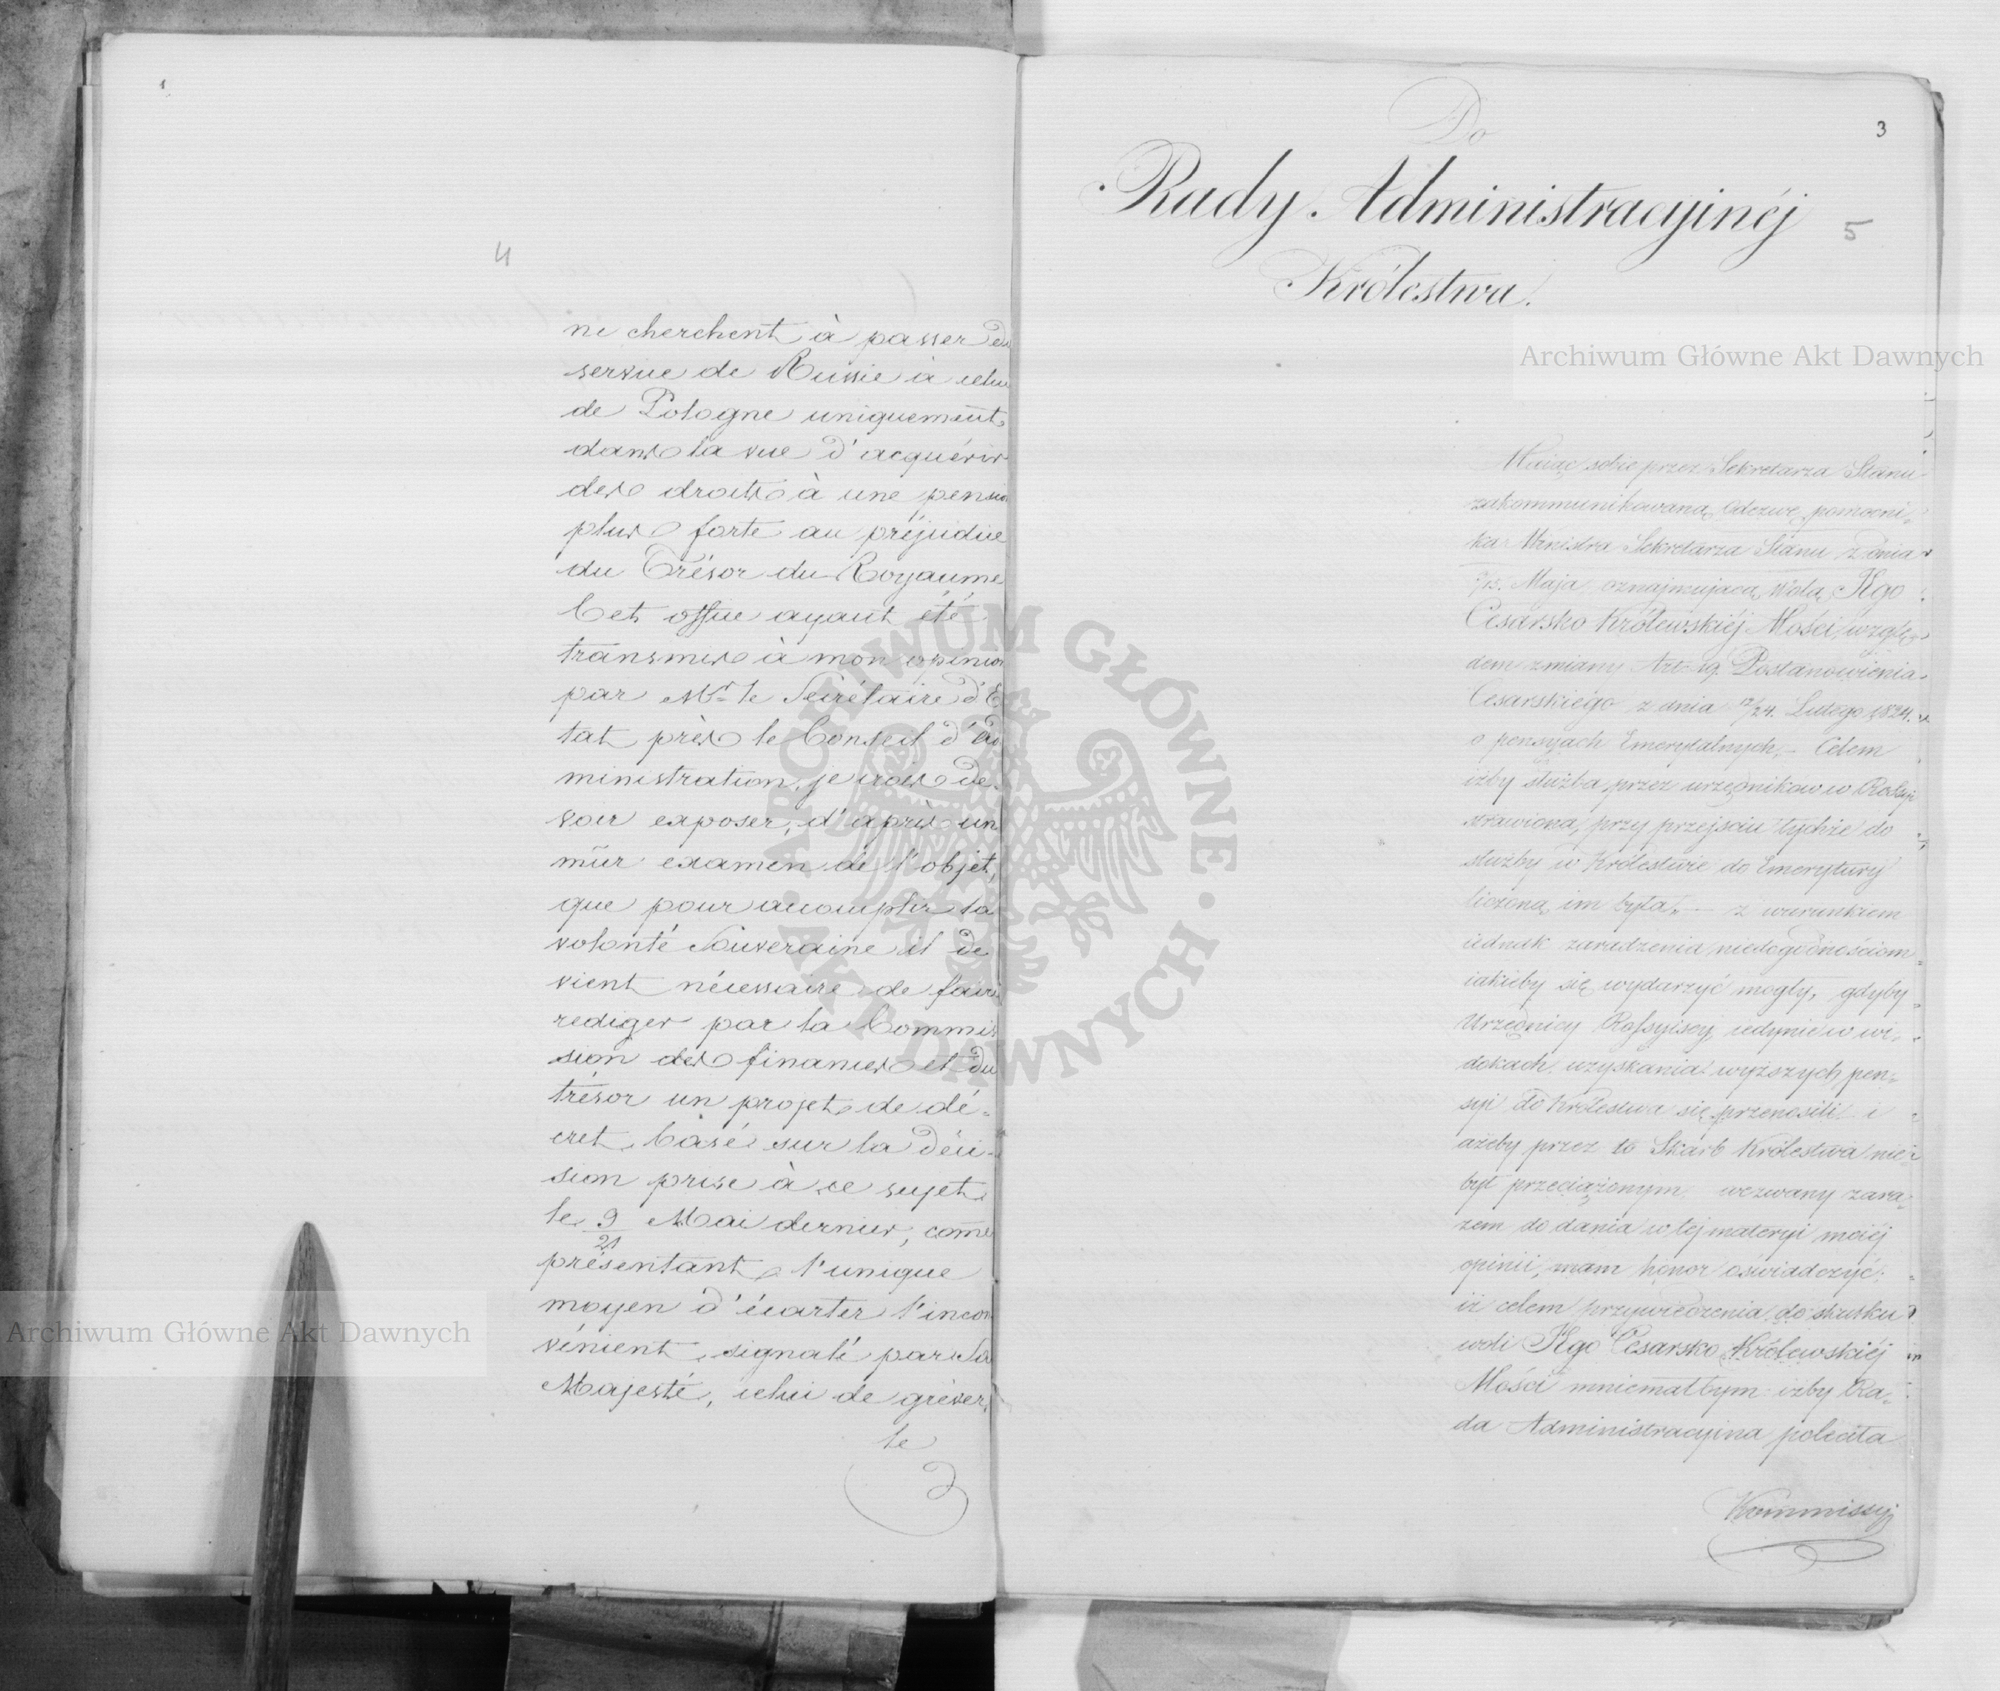 4
ne cherchent à passer du
service de Russie à celui
de Pologne uniquement
dans la vue d'acquérir
des droits à une pension
plus forte au préjudice
du Trésor du Royaume
Cet office ayant été
transmis à mon opinion
par Mr le Secrétaire d'E
tat près le Conseil d'Ad
ministration, je crois de-
voir exposer, d'après un
mûr examen de l'objet,
que pour accomplir la
volonté Souveraine il de
vient nécessaire de faire
rediger par la Commis
sion des finances et du
trésor un projet de dé-
cret, basé sur la déci-
sion prise à ce sujet
le 9/21 Mai dernier, comme
présentant l'unique
moyen d'écarter l'incon
vénient signalé par Sa
Majesté, celui de grèver
le
3
5
Do
Rady Administracyinéj
Królestwa.
Maiąc sobie przez Sekretarza Stanu
zakommunikowaną Odezwę pomocni-
ka Ministra Sekretarza Stanu z dnia
Maja, oznajmującą Wolą JKgo
Cesarsko Królewskiéj Mości wzglę-
dem zmiany Art: 19. Postanowienia
Cesarskiégo z dnia 12/24. Lutego 1824.
o pensyach Emerytalnych, - Celem
iżby służba przez urzędników w Rossyi
strawiona, przy przejściu tychże do
służby w Królestwie do Emerytury
liczoną im była, - z warunkiem
iednak zaradzenia niedogodnościom
iakieby się wydarzyć mogły, gdyby
Urzędnicy Rossyiscy, iedynie w wi-
dokach uzyskania wyższych pen-
syi do Królestwa się przenosili i
ażeby przez to Skarb Królestwa nie
był przeciążonym, wezwany zara-
zem do dania w tej materyi moiéj
opinii, mam honor oświadczyć:
iż celem przywiedzenia do skutku
woli JKgo Cesarsko Królewskiéj
Mości mniemałbym iżby Ra-
da Administracyina poleciła
Kommissyi
Archiwum Główne Akt Dawnych
Archiwum Główne Akt Dawnych
ARCHIWUM GŁÓWNE · AKT DAWNYCH ·